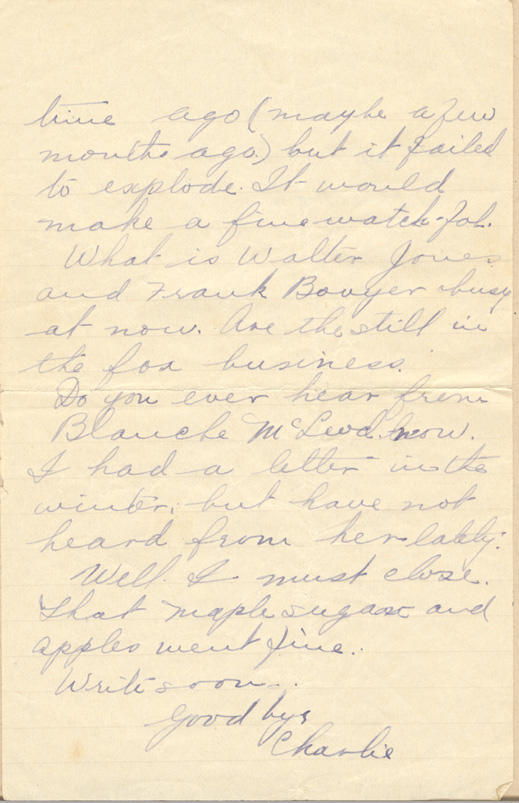 time ago (maybe a few
months ago.) but it failed
to explode. It would
make a fine watch-fob.
What is Walter Jones
and Frank Bovyer busy
at now. Are the still in
the fox business.
Do you ever hear from
Blanche McLeod now.
I had a letter in the
winter, but have not
heard from her lately.
Well I must close.
That maple sugar and
apples went fine.
Write soon.
Good bye
Charlie